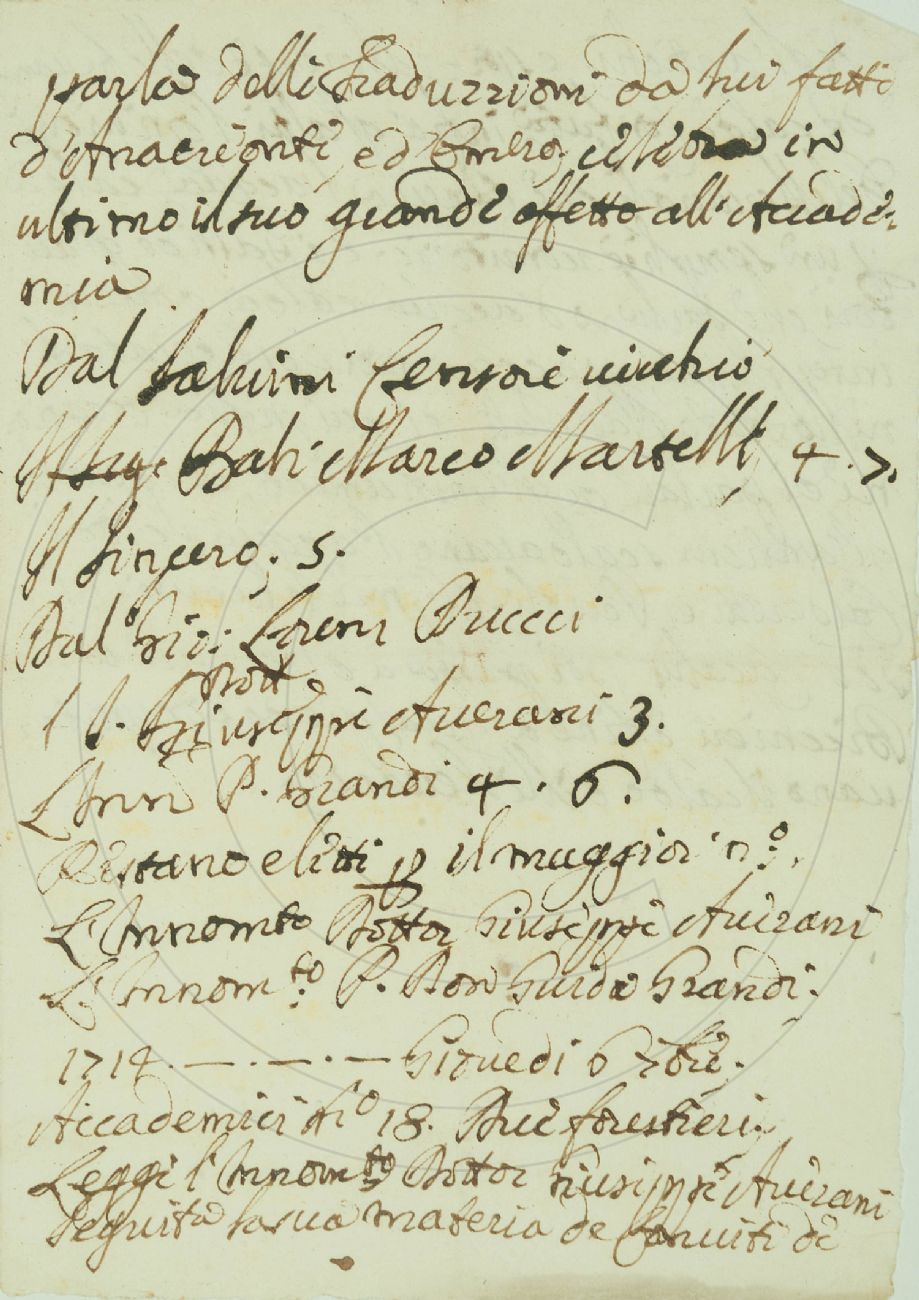 parla delle Traduzzioni da lui fatte
d'Anacreonte, e d'Omero, e
ultimo il suo grande affetto all'Accade-
mia
Dal Salvini Censore vecchio
Il Sig.e Bali Marco Martelli, 4. 7.
Il Sincero; 5.
Dal Gio: Pucci
Dott
Giuseppe Averani 3.
L'Inn P. Grandi 4. 6.
Restano eletti p il maggior n.o.
L'Innomto Dottor Giuseppe Averani
L'Innom.to P. Don Guido Grandi.
1714. —.—.— Giovedi 6 7bre.
Accademici no 18. Due forestieri.
Legge l'Innomto Dottor Giuseppe Averani
Seguita la sua materia de Conviti de